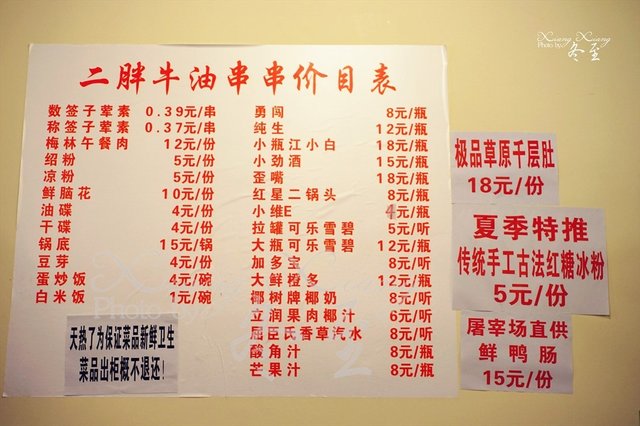 二胖牛油串串价目表
数签子荤素 0.39元/串
称签子荤素 0.37元/串
梅林午餐肉 12元/份
绍粉 5元/份
凉粉 5元/份
鲜脑花 10元/份
油碟 4元/份
干碟 4元/份
锅底 15元/锅
豆芽 4元/份
蛋炒饭 4元/碗
白米饭 1元/碗
勇闯 8元/瓶
纯生 12元/瓶
小瓶江小白 18元/瓶
小劲酒 15元/瓶
歪嘴 18元/瓶
红星二锅头 8元/瓶
小维E 4元/瓶
拉罐可乐雪碧 5元/听
大瓶可乐雪碧 12元/瓶
加多宝 8元/听
大鲜橙多 12元/瓶
椰树牌椰奶 8元/听
立润果肉椰汁 6元/听
屈臣氏香草汽水 8元/听
酸角汁 8元/瓶
芒果汁 8元/瓶
天热了为保证菜品新鲜卫生
菜品出柜概不退还!
极品草原千层肚
18元/份
夏季特推
传统手工古法红糖冰粉
5元/份
屠宰场直供
鲜鸭肠
15元/份
Xiang Xiang
Photo by
冬至